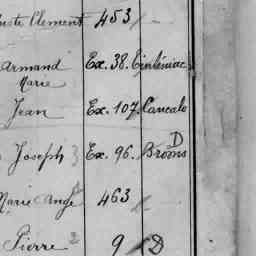 uste Clement 453
Armand Ex. 38. Tinténiac
Marie
Jean Ex. 107. Cancale
Joseph Ex. 96. Broons D
Marie Ange 463
Pierre 9 D